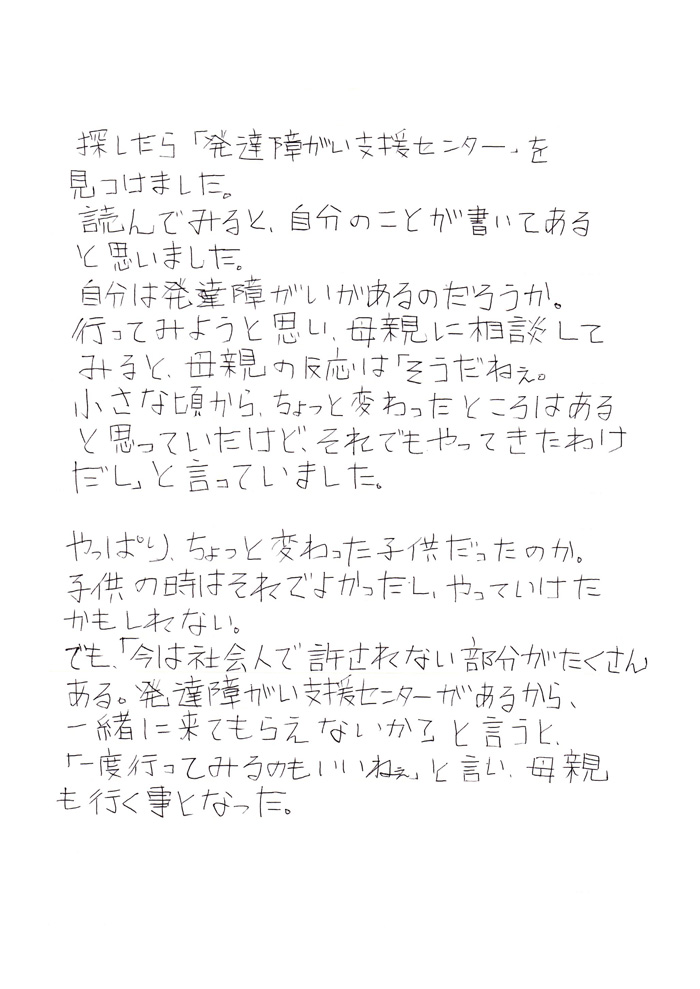 探したら「発達障がい支援センター」を
見つけました。
読んでみると、自分のことが書いてある
と思いました。
自分は発達障がいがあるのだろうか。
行ってみようと思い、母親に相談して
みると、母親の反応は「そうだねぇ。
小さな頃から、ちょっと変わったところはある
と思っていたけど、それでもやってきたわけ
だし」と言っていました。
やっぱり、ちょっと変わった子供だったのか。
子供の時はそれでよかったし、やっていけた
かもしれない。
でも、「今は社会人で許されない部分がたくさん
ある。発達障がい支援センターがあるから、
一緒に来てもらえないか？」と言うと、
「一度行ってみるのもいいねぇ」と言い、母親
も行く事となった。